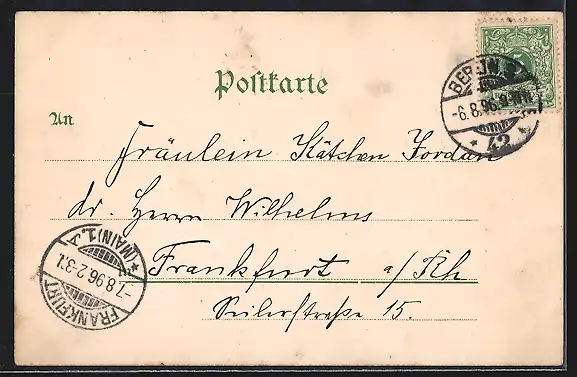 Postkarte
An
Fräulein Kätchen Jordan
dr. Herrn Wilhelms
Frankfurt a/Rh
Seilerstraße 15.
BERLIN S
-6.8.96.
* 42 *
* (MAIN) 1. *
-7.8.96.2-3N.
FRANKFURT